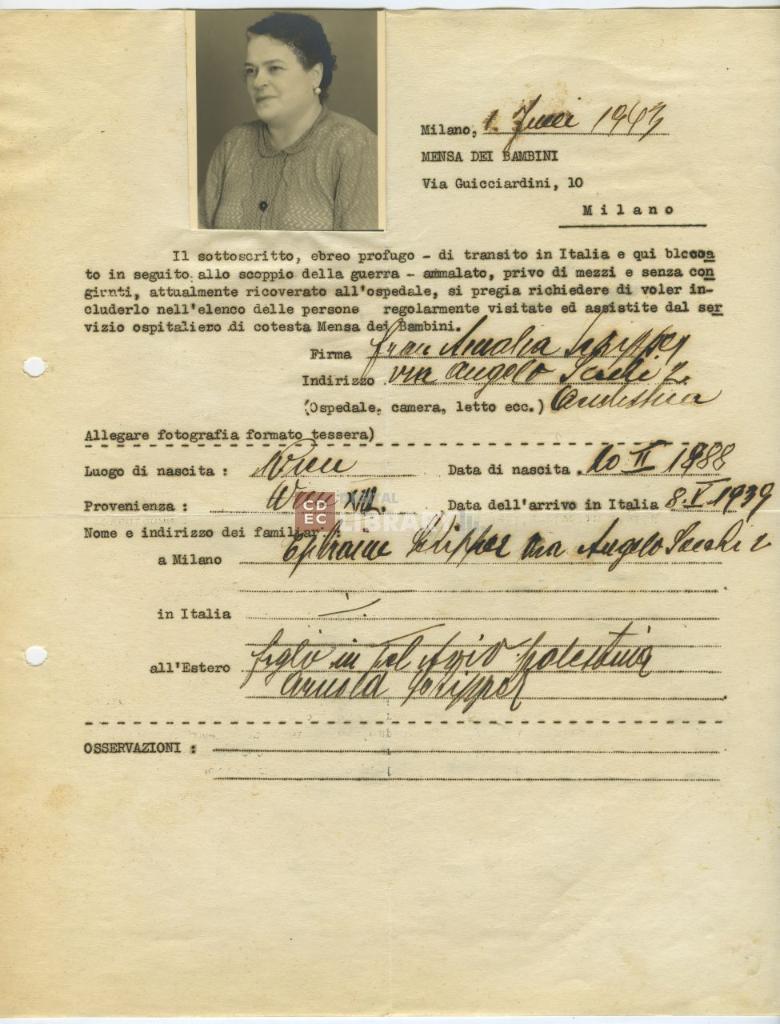 Milano, 1. Juni 1943
MENSA DEI BAMBINI
Via Guicciardini, 10
Milano
Il sottoscritto, ebreo profugo - di transito in Italia e qui blccoa
to in seguito allo scoppio della guerra - ammalato, privo di mezzi e senza con
giunti, attualmente ricoverato all'ospedale, si pregia richiedere di voler in-
cluderlo nell'elenco delle persone regolarmente visitate ed assistite dal ser
vizio ospitaliero di cotesta Mensa dei Bambini.
Firma Frau Amalia
Indirizzo via Angelo Secchi 2.
(Ospedale, camera, letto ecc.)
Allegare fotografia formato tessera)
Luogo di nascita : Wien Data di nascita 10 II 1888
Provenienza : Wien XVI. Data dell'arrivo in Italia 8.V.1939
CD EC DIGITAL LIBRARY
Nome e indirizzo dei familiari
a Milano via Angelo Secchi 2
in Italia
all'Estero figlio in Tel Aviv Palestina
Arnold
OSSERVAZIONI :